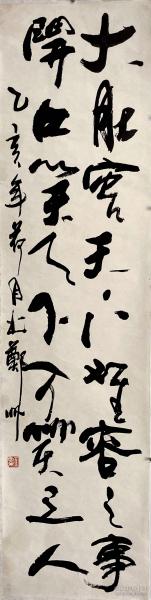 大肚容天下難容之事
開口笑天下可笑之人
乙亥年月於鄭州